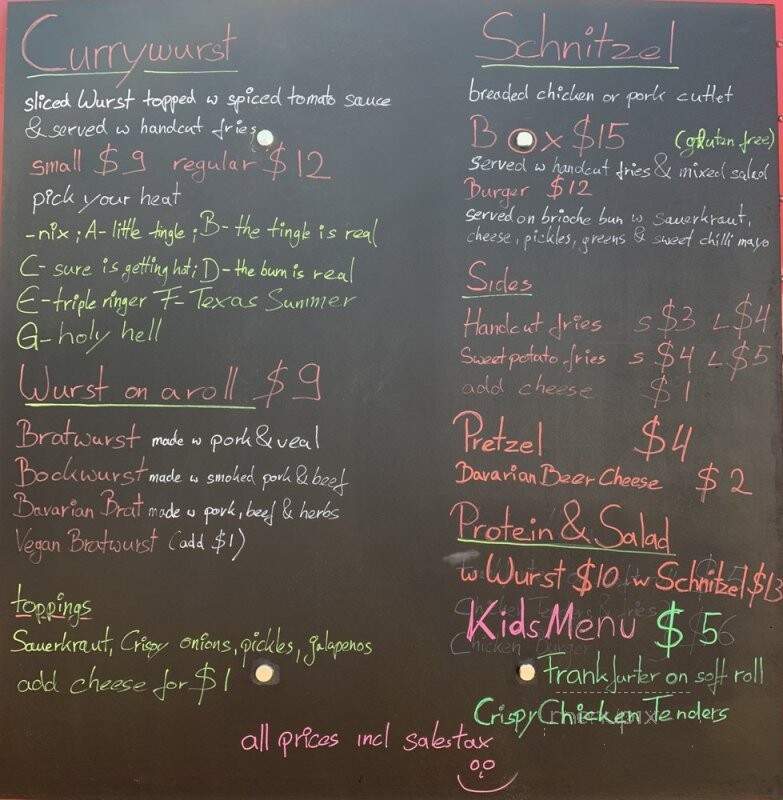 Currywurst
sliced Wurst topped w spiced tomato sauce
& served w handcut fries
small $9 regular $12
pick your heat
-nix; A-little tingle; B-the tingle is real
C-sure is getting hot; D-the burn is real
E-triple ringer F-Texas Summer
G-holy hell
Wurst on a roll $9
Bratwurst made w pork & veal
Bockwurst made w smoked pork & beef
Bavarian Brat made w pork, beef & herbs
Vegan Bratwurst (add $1)
toppings
Sauerkraut, Crispy onions, pickles, jalapenos
add cheese for $1
Schnitzel
breaded chicken or pork cutlet
Box $15 (gluten free)
served w handcut fries & mixed salad
Burger $12
served on brioche bun w sauerkraut,
cheese, pickles, greens & sweet chilli mayo
Sides
Handcut fries S $3 L $4
Sweet potato fries S $4 L $5
add cheese $1
Pretzel $4
Bavarian Beer Cheese $2
Protein & Salad
w Wurst $10 w Schnitzel $13
Kids Menu $5
Frankfurter on soft roll
Crispy Chicken Tenders
all prices incl sales tax